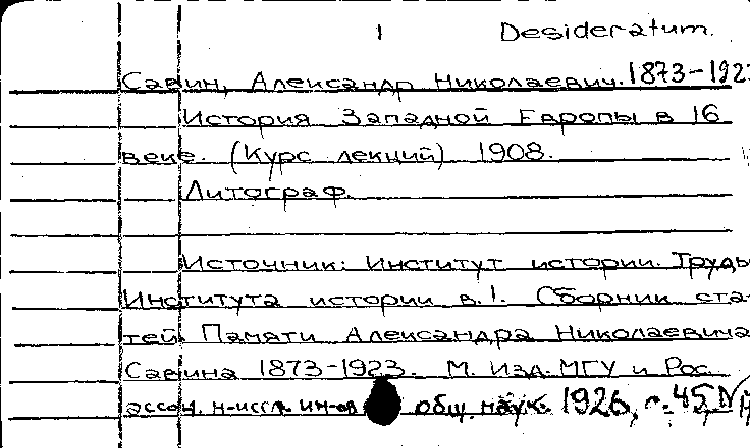 1 Desideratum.
Савин, Александр Николаевич. 1873-192
История Западной Европы в 16
веке. (Курс лекций) 1908.
Литограф.
Источник: Институт истории. Труды
Института истории в. 1. Сборник ста-
тей Памяти Александра Николаевича
Савина 1873-1923. М. Изд. МГУ и Рос.
ассоц. н-иссл. ин-ов общ. наук. 1926, с. 45,